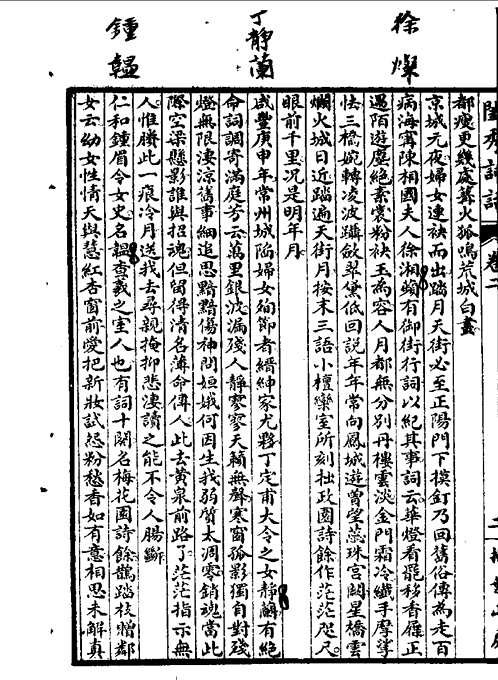 閨秀詞話 卷二
徐燦
丁靜蘭
鍾韞
都瘦更幾處篝火狐鳴荒城白晝
京城元夜婦女連袂而出踏月天街必至正陽門下摸釘乃回舊俗傳為走百
病海寧陳相國夫人徐湘蘋有御街行詞以紀其事詞云華燈看罷移香屧正
御陌遊塵絕素裳粉袂玉為容人月都無分別丹樓雲淡金門霜冷纖手摩挲
怯三橋婉轉凌波躡斂翠黛低回說年年常向鳳城遊曾望蕊珠宮闕星橋雲
爛火城日近踏遍天街月按末三語小檀欒室所刻拙政園詩餘作茫茫咫尺
眼前千里況是明年月
咸豐庚申年常州城陷婦女殉節者縉紳家尤夥丁定甫大令之女靜蘭有絕
命詞調寄滿庭芳云萬里銀波漏殘人靜寥寥天籟無聲寒窗孤影獨自對殘
燈無限淒涼舊事細追思黯黯傷神問姮娥何因生我弱質太凋零銷魂當此
際空梁懸影誰與招魂但留得清名薄命傳人此去黃泉前路了茫茫指示無
人惟賸此一痕冷月送我去尋親掩抑悲淒讀之能不令人腸斷
仁和鍾眉令女史名韞查羲之室人也有詞十闋名梅花園詩餘鵲踏枝贈鄰
女云幼女性情天與慧紅杏窗前愛把新妝試怨粉愁香如有意相思未解真